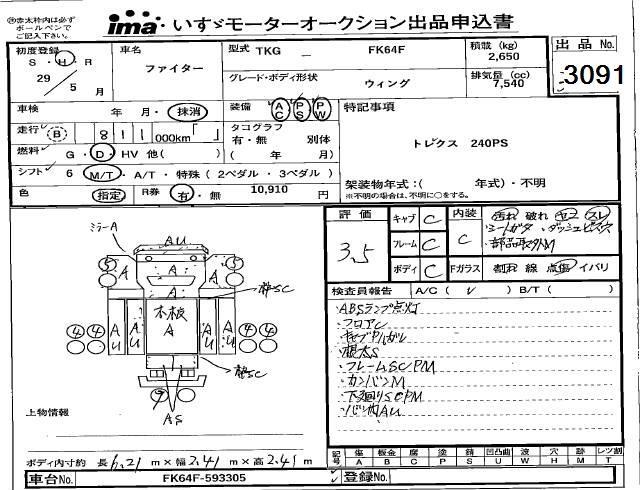 ㊟赤太枠内は必ず
ボールペンで
ご記入下さい。
ima・いすゞモーターオークション出品申込書
初度登録
S・H・R
29年
5月
車名
ファイター
型式 TKG FK64F
グレード・ボディ形状 ウィング
積載 (kg)
2,650
排気量 (cc)
7,540
出品 No.
3091
車検 年 月・抹消
装備 AC PS PW
走行 B 811 000km「 」
タコグラフ
有・無 別体
( 年 月)
燃料 G・D・HV 他( )
シフト 6 M/T・A/T・特殊 (2ペダル・3ペダル)
色 指定 R券 有・無 10,910 円
特記事項
トレクス 240PS
架装物年式:( 年式)・不明
※不明の場合は、不明に○をする。
評価
3.5
キャブ C
フレーム C
ボディ C
内装
C
汚れ 破れ ヤコ スレ
・シートガタ・ダッシュビス穴
・部品取外M
Fガラス 割れ 線 点傷 イバリ
検査員報告 A/C ( レ ) B/T ( )
・ABSランプ点灯
・フロアC
・根太S
・フレームSC PM
・カンバンM
・下廻りSCPM
・バン内AU
ミラーA
AU
⑤ A A ⑤
A
枠SC
④④ AU AU 木板 A AU AU ④④
枠SC
AS
上物情報
ボディ内寸約 長 6.21 m×幅 2.41 m×高 2.41 m
記号 傷 A 板金 B 腐 C 塗 P 錆 S 凹凸曲 U 波 W 穴 H 無 M レツ割 T
車台No. FK64F-593305
登録No.